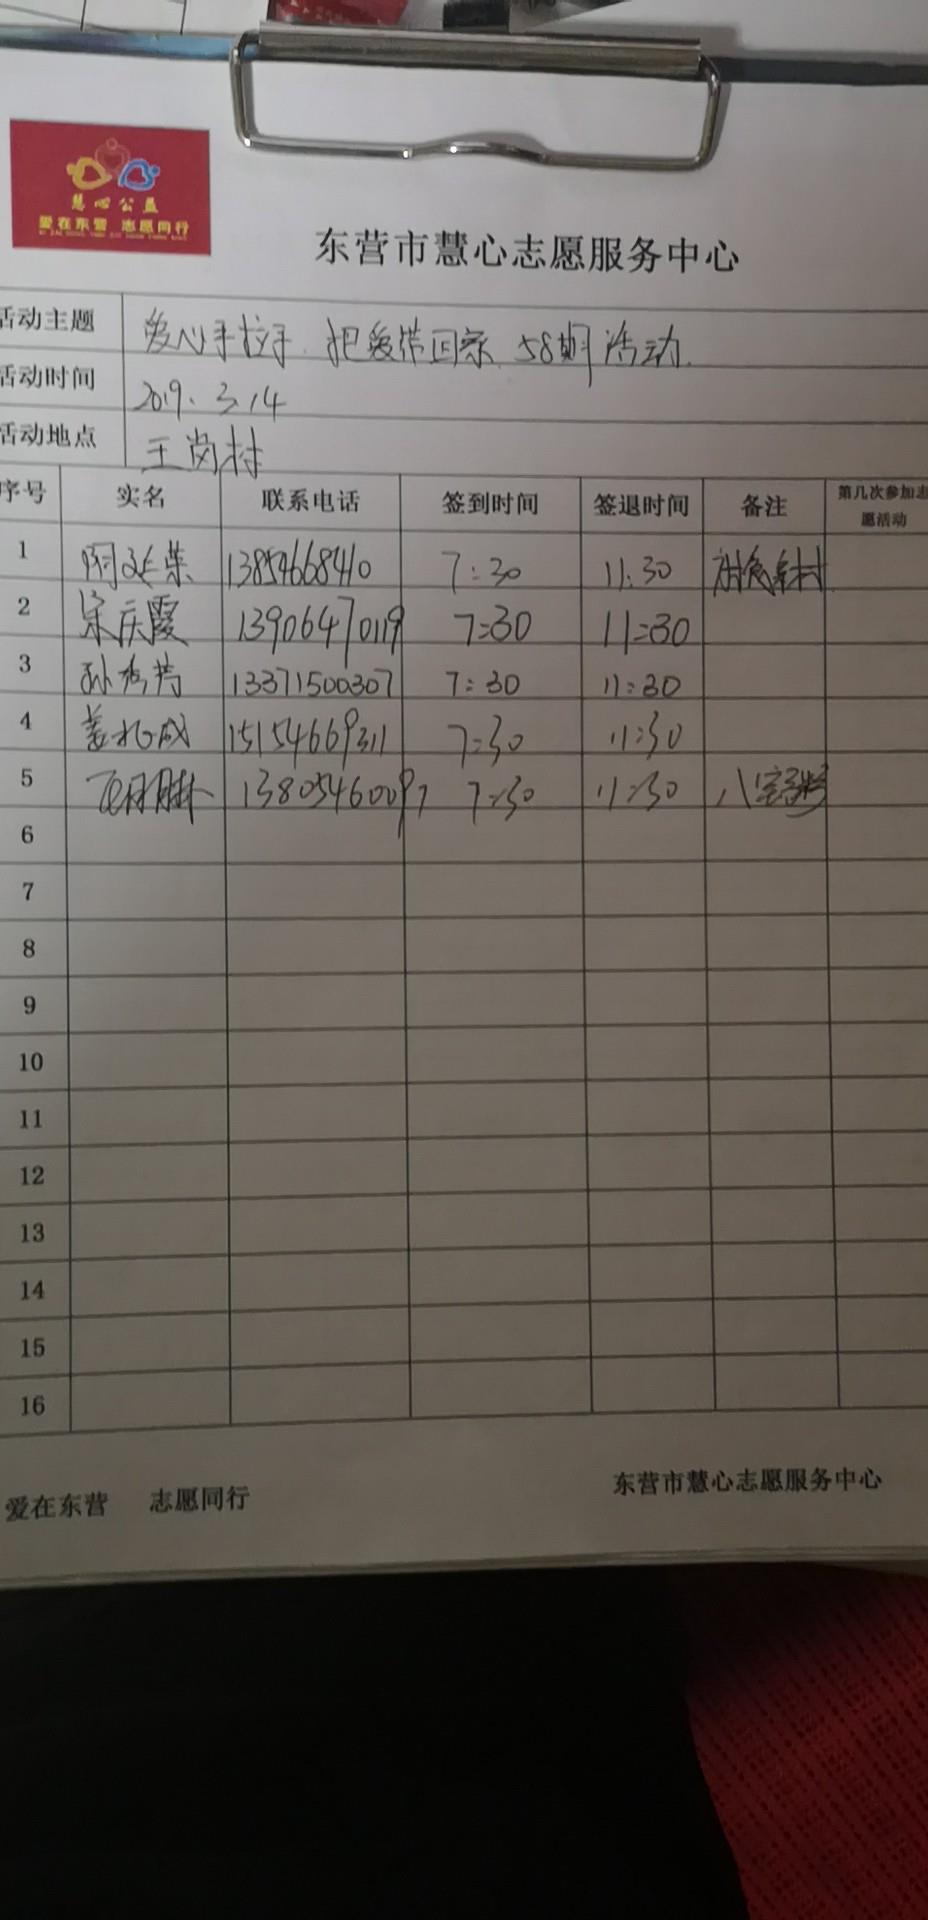 慧心公益
爱在东营 志愿同行
东营市慧心志愿服务中心
活动主题 爱心手拉手 把爱带回家 58期活动.
活动时间 2019.3.14
活动地点 王岗村
序号 实名 联系电话 签到时间 签退时间 备注 第几次参加志
愿活动
1 13854668410 7:30 11:30
2 宋庆霞 13906470119 7:30 11:30
3 孙秀芳 13371500307 7:30 11:30
4 姜 成 15154669311 7:30 11:30
5 13805460097 7:30 11:30 八宝粥
6
7
8
9
10
11
12
13
14
15
16
爱在东营 志愿同行 东营市慧心志愿服务中心